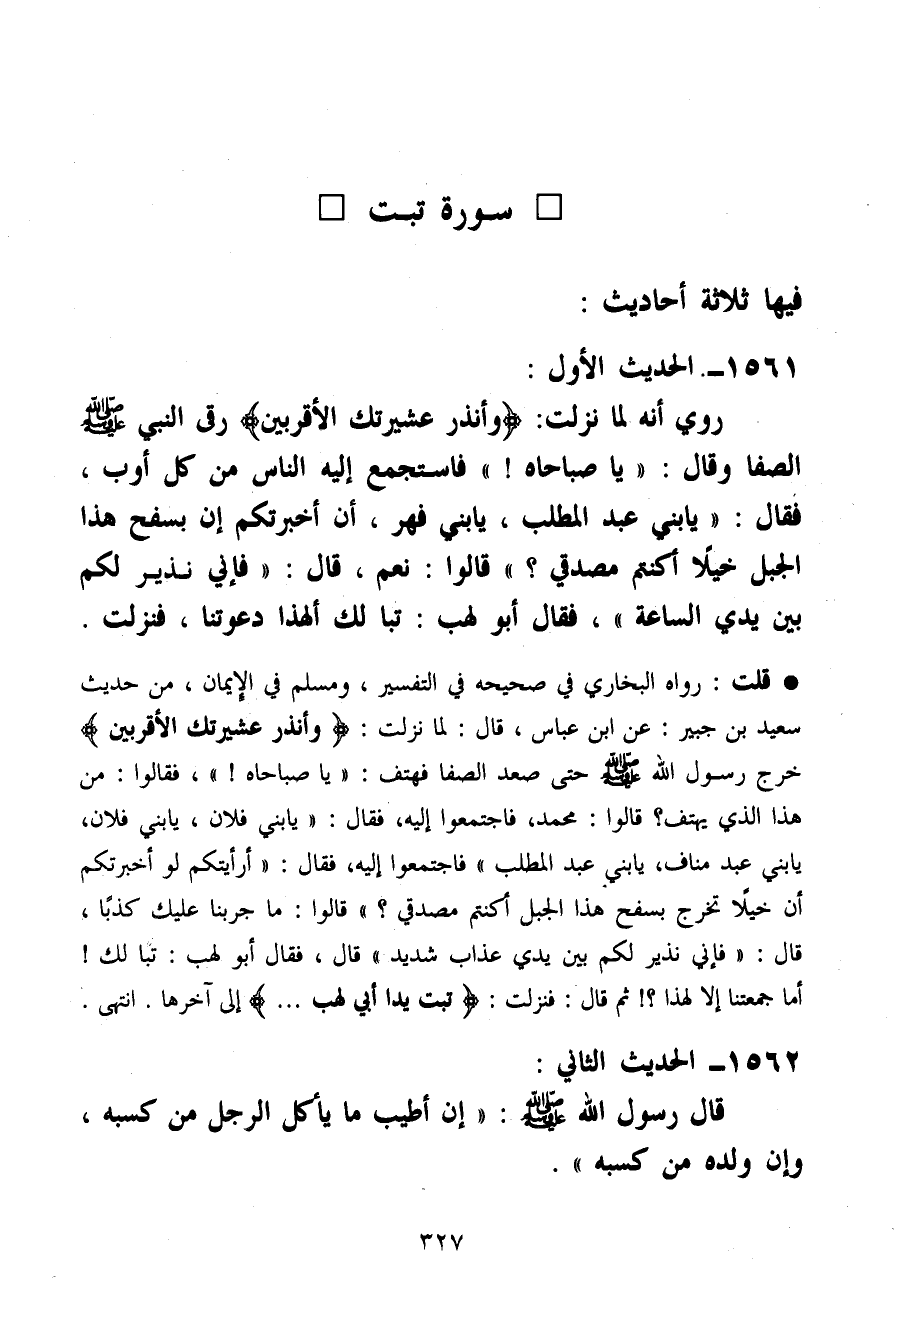 □ سورة تبت □
فيها ثلاثة أحاديث :
١٥٦١ـ. الحديث الأول :
روي أنه لما نزلت: ﴿وأنذر عشيرتك الأقربين﴾ رقى النبي ﷺ
الصفا وقال : « يا صباحاه ! » فاستجمع إليه الناس من كل أوب ،
فقال : « يابني عبد المطلب ، يابني فهر ، أن أخبرتكم إن بسفح هذا
الجبل خيلًا أكنتم مصدقي ؟ » قالوا : نعم ، قال : « فإني نذير لكم
بين يدي الساعة » ، فقال أبو لهب : تبا لك ألهذا دعوتنا ، فنزلت .
● قلت : رواه البخاري في صحيحه في التفسير ، ومسلم في الإيمان ، من حديث
سعيد بن جبير : عن ابن عباس ، قال : لما نزلت : ﴿ وأنذر عشيرتك الأقربين ﴾
خرج رسول الله ﷺ حتى صعد الصفا فهتف : « يا صباحاه ! » ، فقالوا : من
هذا الذي يهتف؟ قالوا : محمد، فاجتمعوا إليه، فقال : « يابني فلان ، يابني فلان،
يابني عبد مناف، يابني عبد المطلب » فاجتمعوا إليه، فقال : « أرأيتكم لو أخبرتكم
أن خيلًا تخرج بسفح هذا الجبل أكنتم مصدقي ؟ » قالوا : ما جربنا عليك كذبًا ،
قال : « فإني نذير لكم بين يدي عذاب شديد » قال ، فقال أبو لهب : تبا لك !
أما جمعتنا إلا لهذا ؟! ثم قال : فنزلت : ﴿ تبت يدا أبي لهب ... ﴾ إلى آخرها . انتهى .
١٥٦٢ـ الحديث الثاني :
قال رسول الله ﷺ : « إن أطيب ما يأكل الرجل من كسبه ،
وإن ولده من كسبه » .
٣٢٧